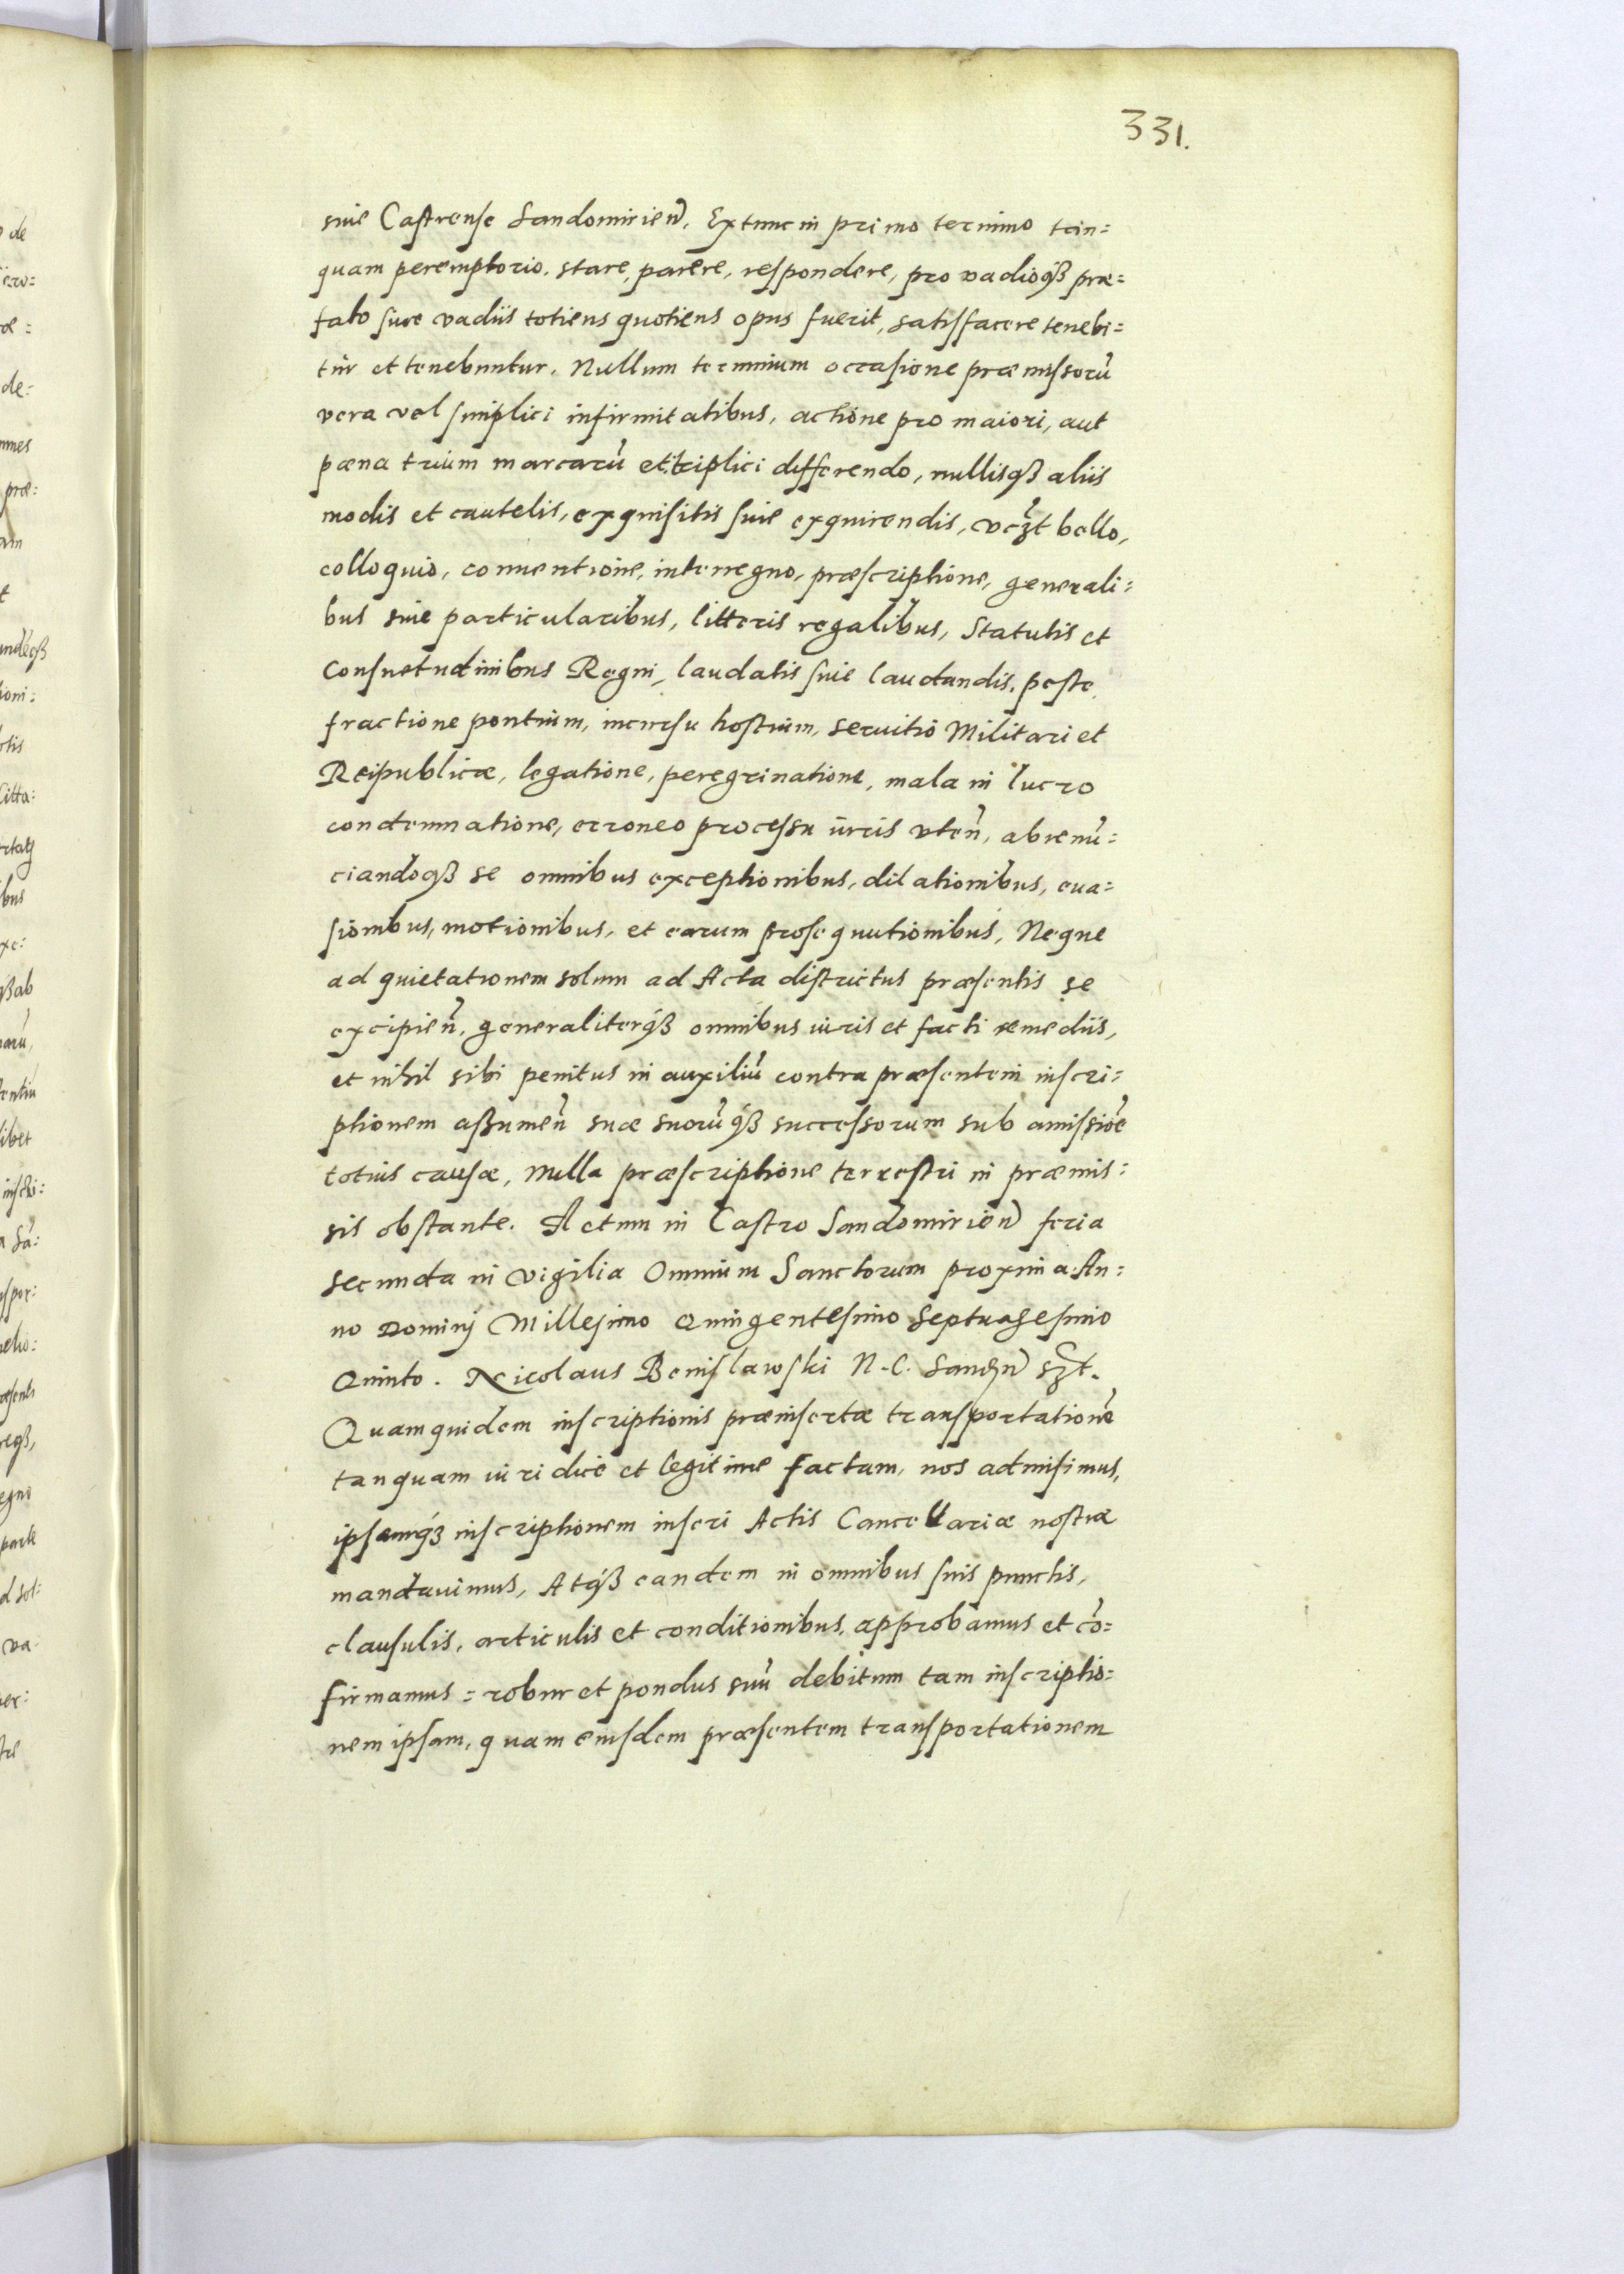 331.
siue Castrense Sandomirien̄. Extunc in primo termino tan=
quam peremptorio, stare, parere, respondere, pro vadioqȝ præ=
fato siue vadiis totiens quotiens opus fuerit, satisfacere tenebi=
tur et tenebuntur. Nullum terminum occasione præmissorū
vera vel simplici infirmitatibus, actione pro maiori, aut
pæna trium marcarū et triplici differendo, nullisqȝ aliis
modis et cautelis, exquisitis siue exquirendis, vcȝt bello,
colloquio, conuentione, interregno, præscriptione, generali=
bus siue particularibus, litteris regalibus, Statutis et
Consuetudinibus Regni, laudatis siue laudandis, peste,
fractione pontium, incursu hostium, seruitio Militari et
Reipublicæ, legatione, peregrinatione, mala in lucro
condemnatione, erroneo processu iuris vten̄, abrenū=
ciandoqȝ se omnibus exceptionibus, dilationibus, eua=
sionibus, motionibus, et earum prosequutionibus, Neque
ad quietationem solum ad Acta districtus præsentis se
excipien̄, generaliterqȝ omnibus iuris et facti remediis,
et nihil sibi penitus in auxiliū contra præsentem inscri=
ptionem assumen̄ suæ suorūqȝ successorum sub amissiōe
totius causæ, nulla præscriptione terrestri in præmis=
sis obstante. Actum in Castro Sandomirien̄ feria
secunda in vigilia Omnium Sanctorum proxima An=
no Dominj Millesimo Quingentesimo Septuagesimo
Quinto. Nicolaus Benislawski N. C. Sandn̄ sȝt.
Quamquidem inscriptionis præinsertæ transportationē
tanquam iuridice et legitime factam, nos admisimus,
ipsamqȝ inscriptionem inseri Actis Cancellariæ nostræ
mandauimus, Atqȝ eandem in omnibus suis punctis,
clausulis, articulis et conditionibus, approbamus et cō=
firmamus = robur et pondus suū debitum tam inscriptio=
nem ipsam, quam eiusdem præsentem transportationem